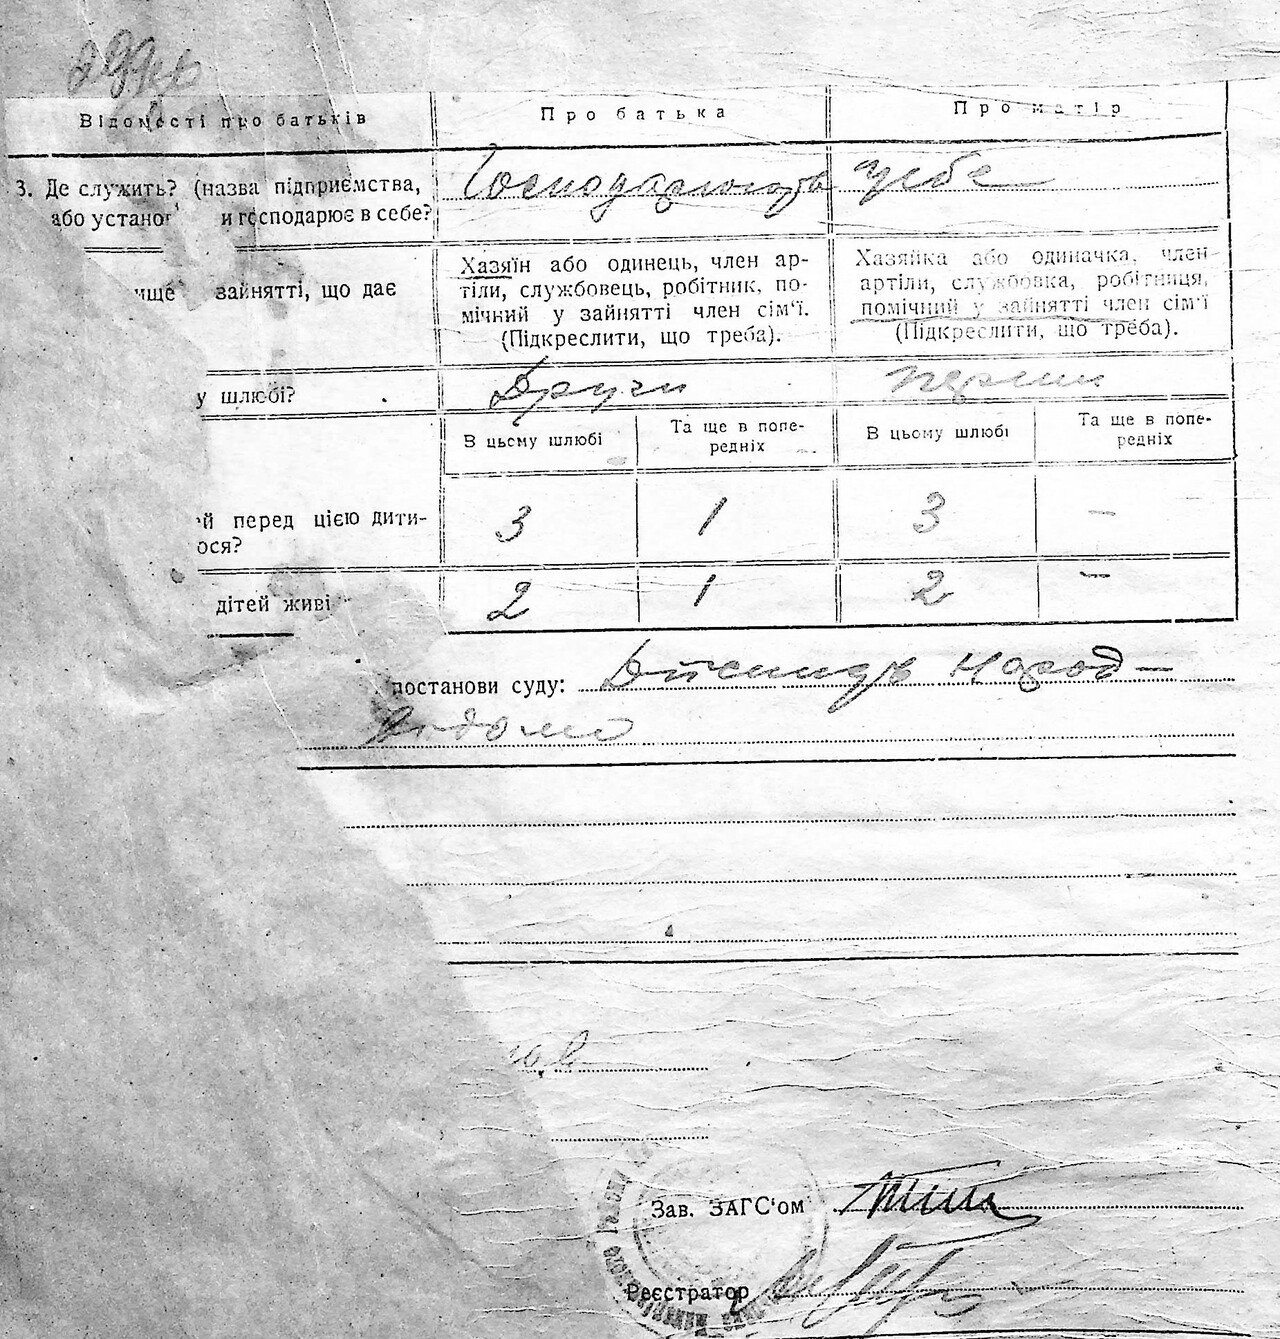 Відомості про батьків
Про батька
Про матір
3. Де служить? (назва підприємства,
або устано и господарює в себе?
Господарюють у себе
ище зайнятті, що дає
Хазяїн або одинець, член ар-
тіли, службовець, робітник, по-
мічний у зайнятті член сім'ї.
(Підкреслити, що треба).
Хазяйка або одиначка, член
артіли, службовка, робітниця,
помічний у зайнятті член сім'ї
(Підкреслити, що треба).
у шлюбі?
Други
перший
В цьому шлюбі
Та ще в попе-
редніх
В цьому шлюбі
Та ще в попе-
редніх
й перед цією дити-
ося?
3
1
3
–
дітей живі
2
1
2
–
постанови суду:
народ-
Зав. ЗАГС'ом
Реєстратор